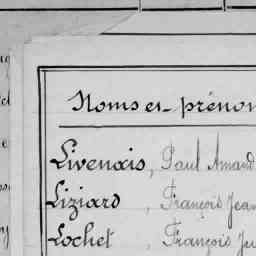 Noms et prénom
Livenais, Paul Amand
Liziard, François Jean
Lochet, François Ju